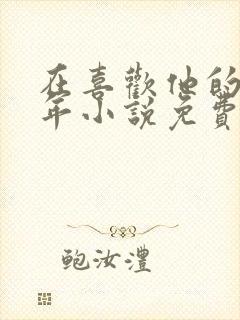 在喜歡他的
年小說免費
鲍汝澧